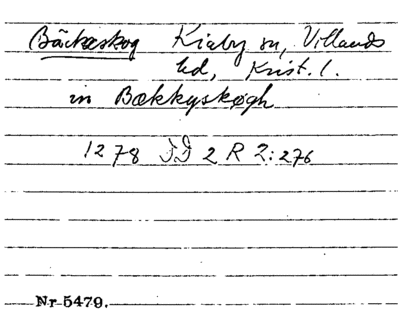 Bäckaskog Kiaby sn, Villands
hd, Krist. l.
in Bækkyskøgh
1278 DD 2 R 2:276
Nr 5479.